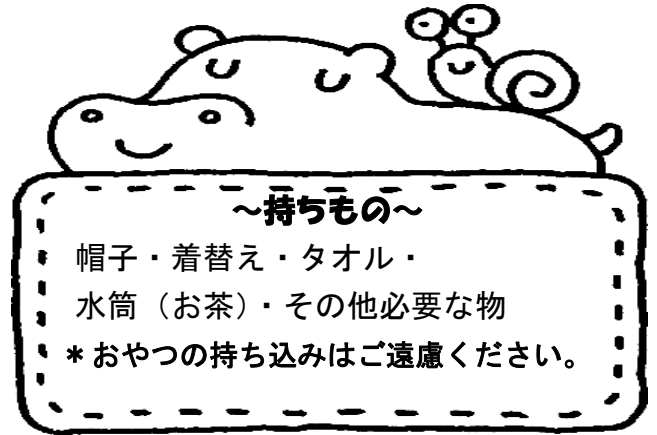 ～持ちもの～
帽子・着替え・タオル・
水筒（お茶）・その他必要な物
＊おやつの持ち込みはご遠慮ください。